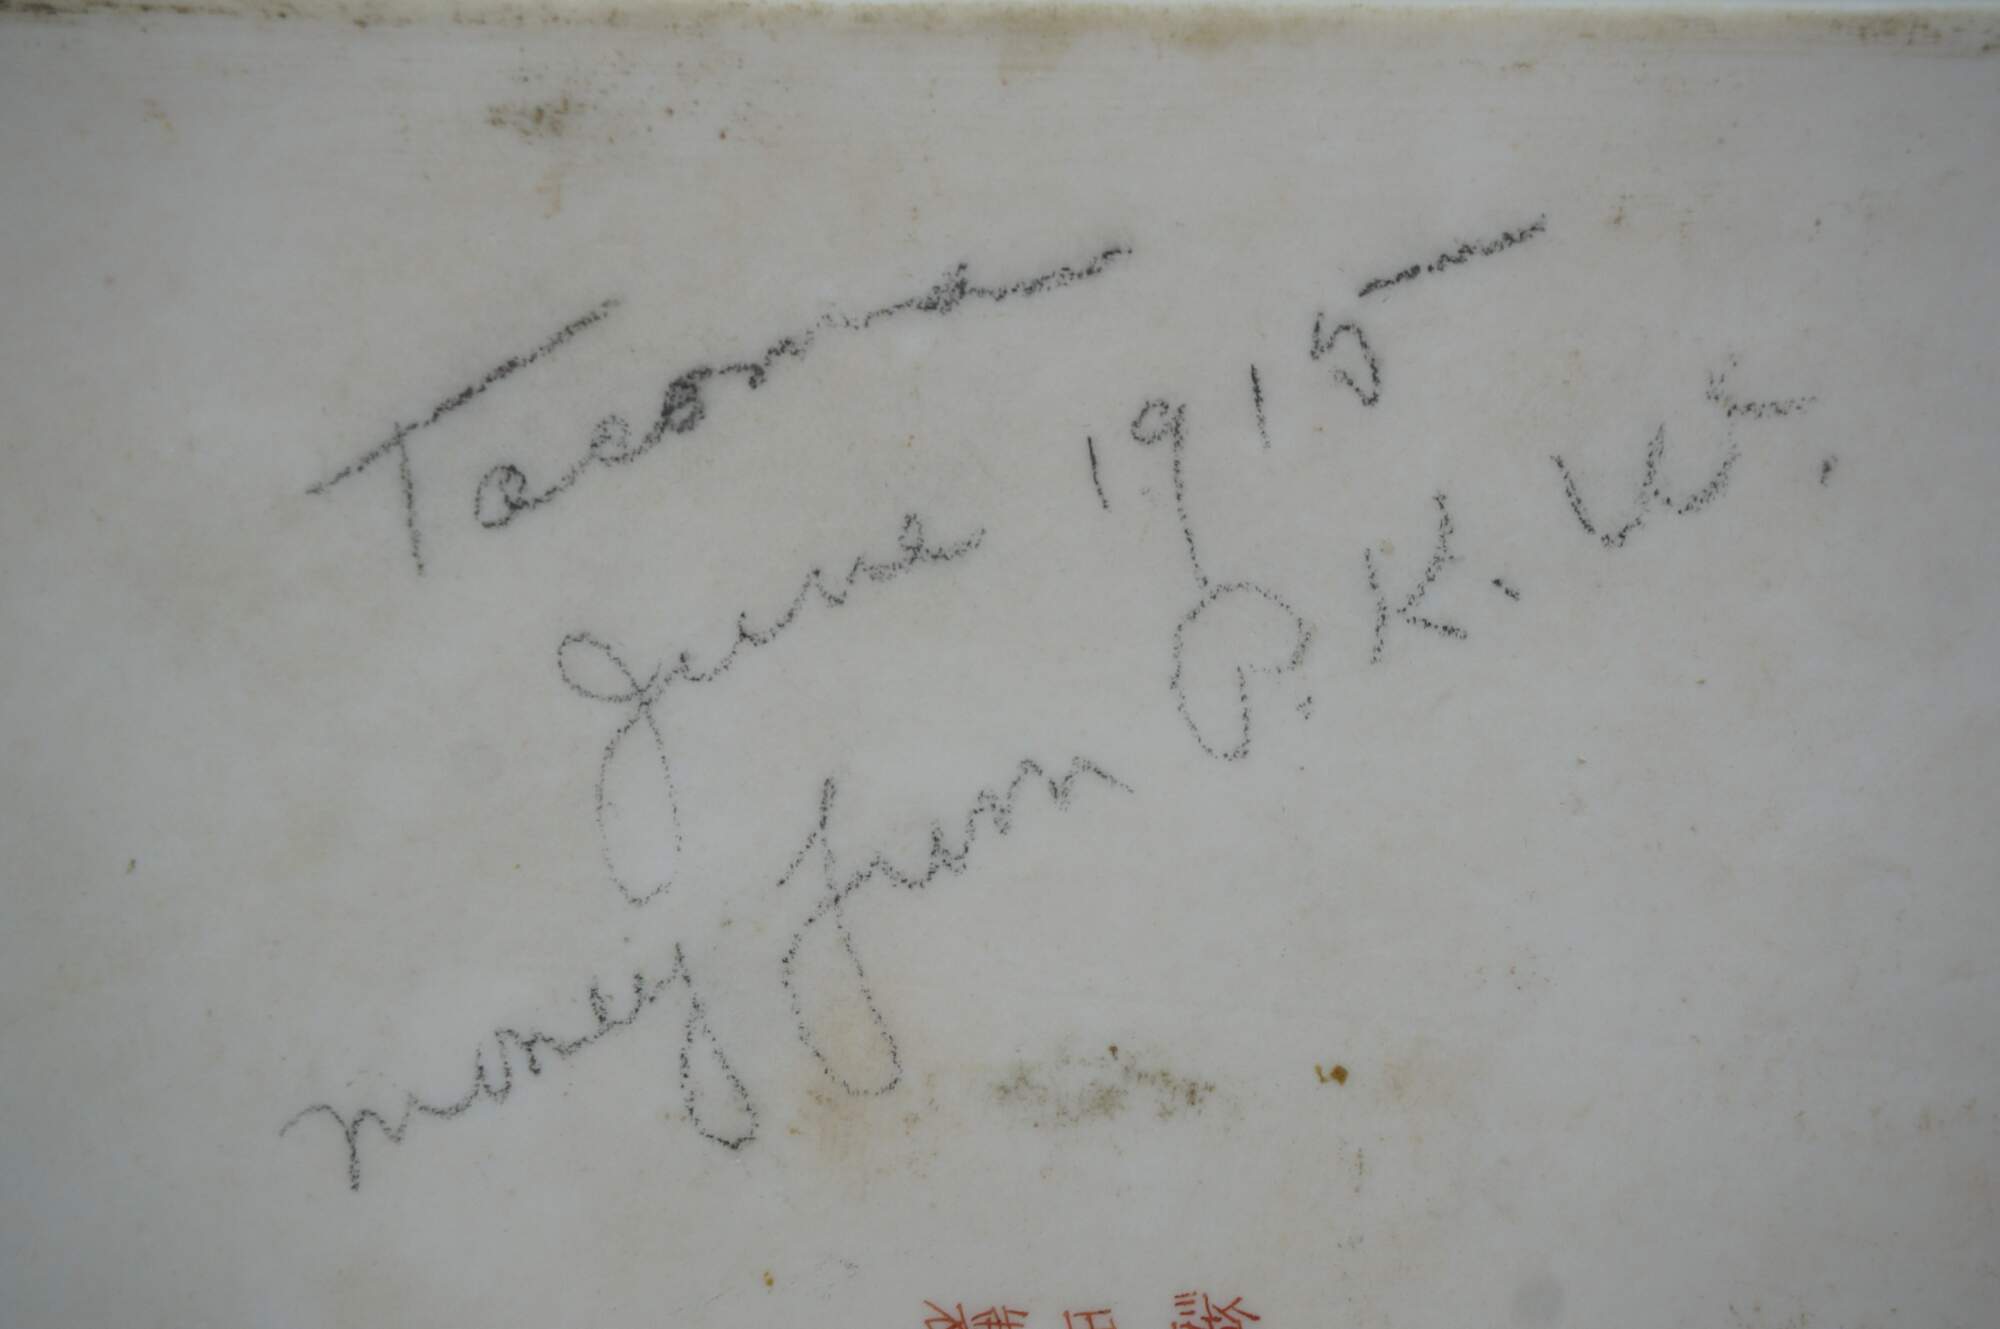 Tacoma
June 1915
money from P.K.W.